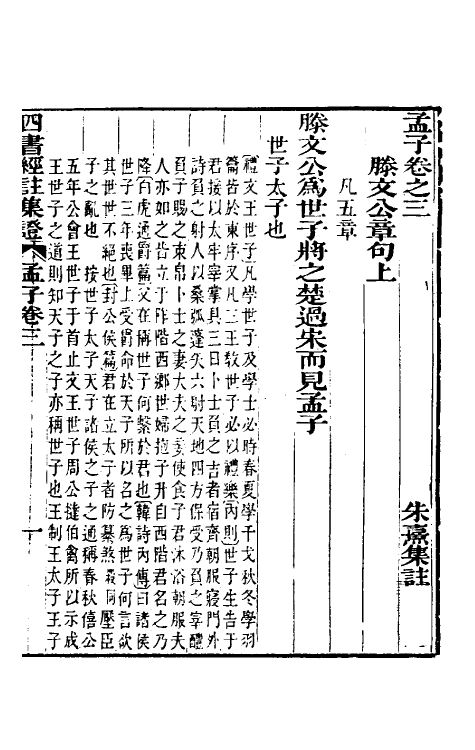 孟子卷之三
朱熹集註
滕文公章句上
凡五章
滕文公爲世子將之楚過宋而見孟子
世子太子也
禮文王世子凡學世子及學士必時春夏學干戈秋冬學羽
籥皆於東序又凡三王敎世子必以禮樂內則世子生告于
君接以太牢宰掌具三日卜士負之吉者宿齊朝服寢門外
詩負之射人以桑弧蓬矢六射天地四方保受乃負之宰醴
負子賜之束帛卜士之妻大夫之妾使食子君沐浴朝服夫
人亦如之皆立于阼階西鄕世婦抱子升自西階君名之乃
降白虎通爵篇父在稱世子何繫於君也韓詩內傳曰諸侯
世子三年喪畢上受爵命於天子所以名之爲世子何言欲
其世世不絕也封公侯篇君在立太子者防篡煞壓臣
子之亂也 按世子太子天子諸侯之子之通稱春秋僖公
五年公會王世子于首止文王世子周公撻伯禽所以示成
王世子之道則知天子之子亦稱世子也王制王太子王子
四書經註集證 孟子卷三 一